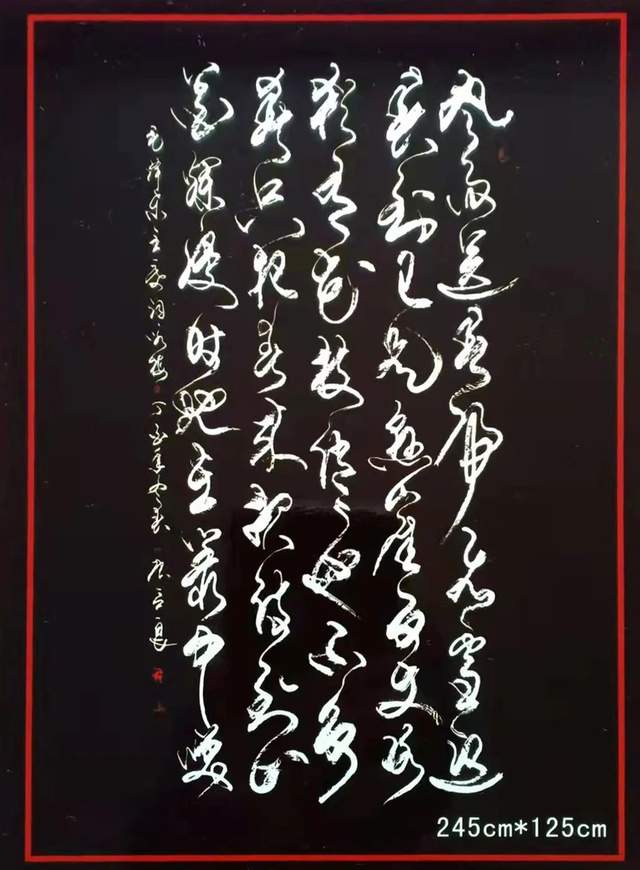 风雨送春归飞雪迎
春到已是悬崖百丈冰
犹有花枝俏々也不争
春只把春来报待到山
花烂漫时她在丛中笑
毛泽东主席词咏梅 丁酉年
245cm*125cm